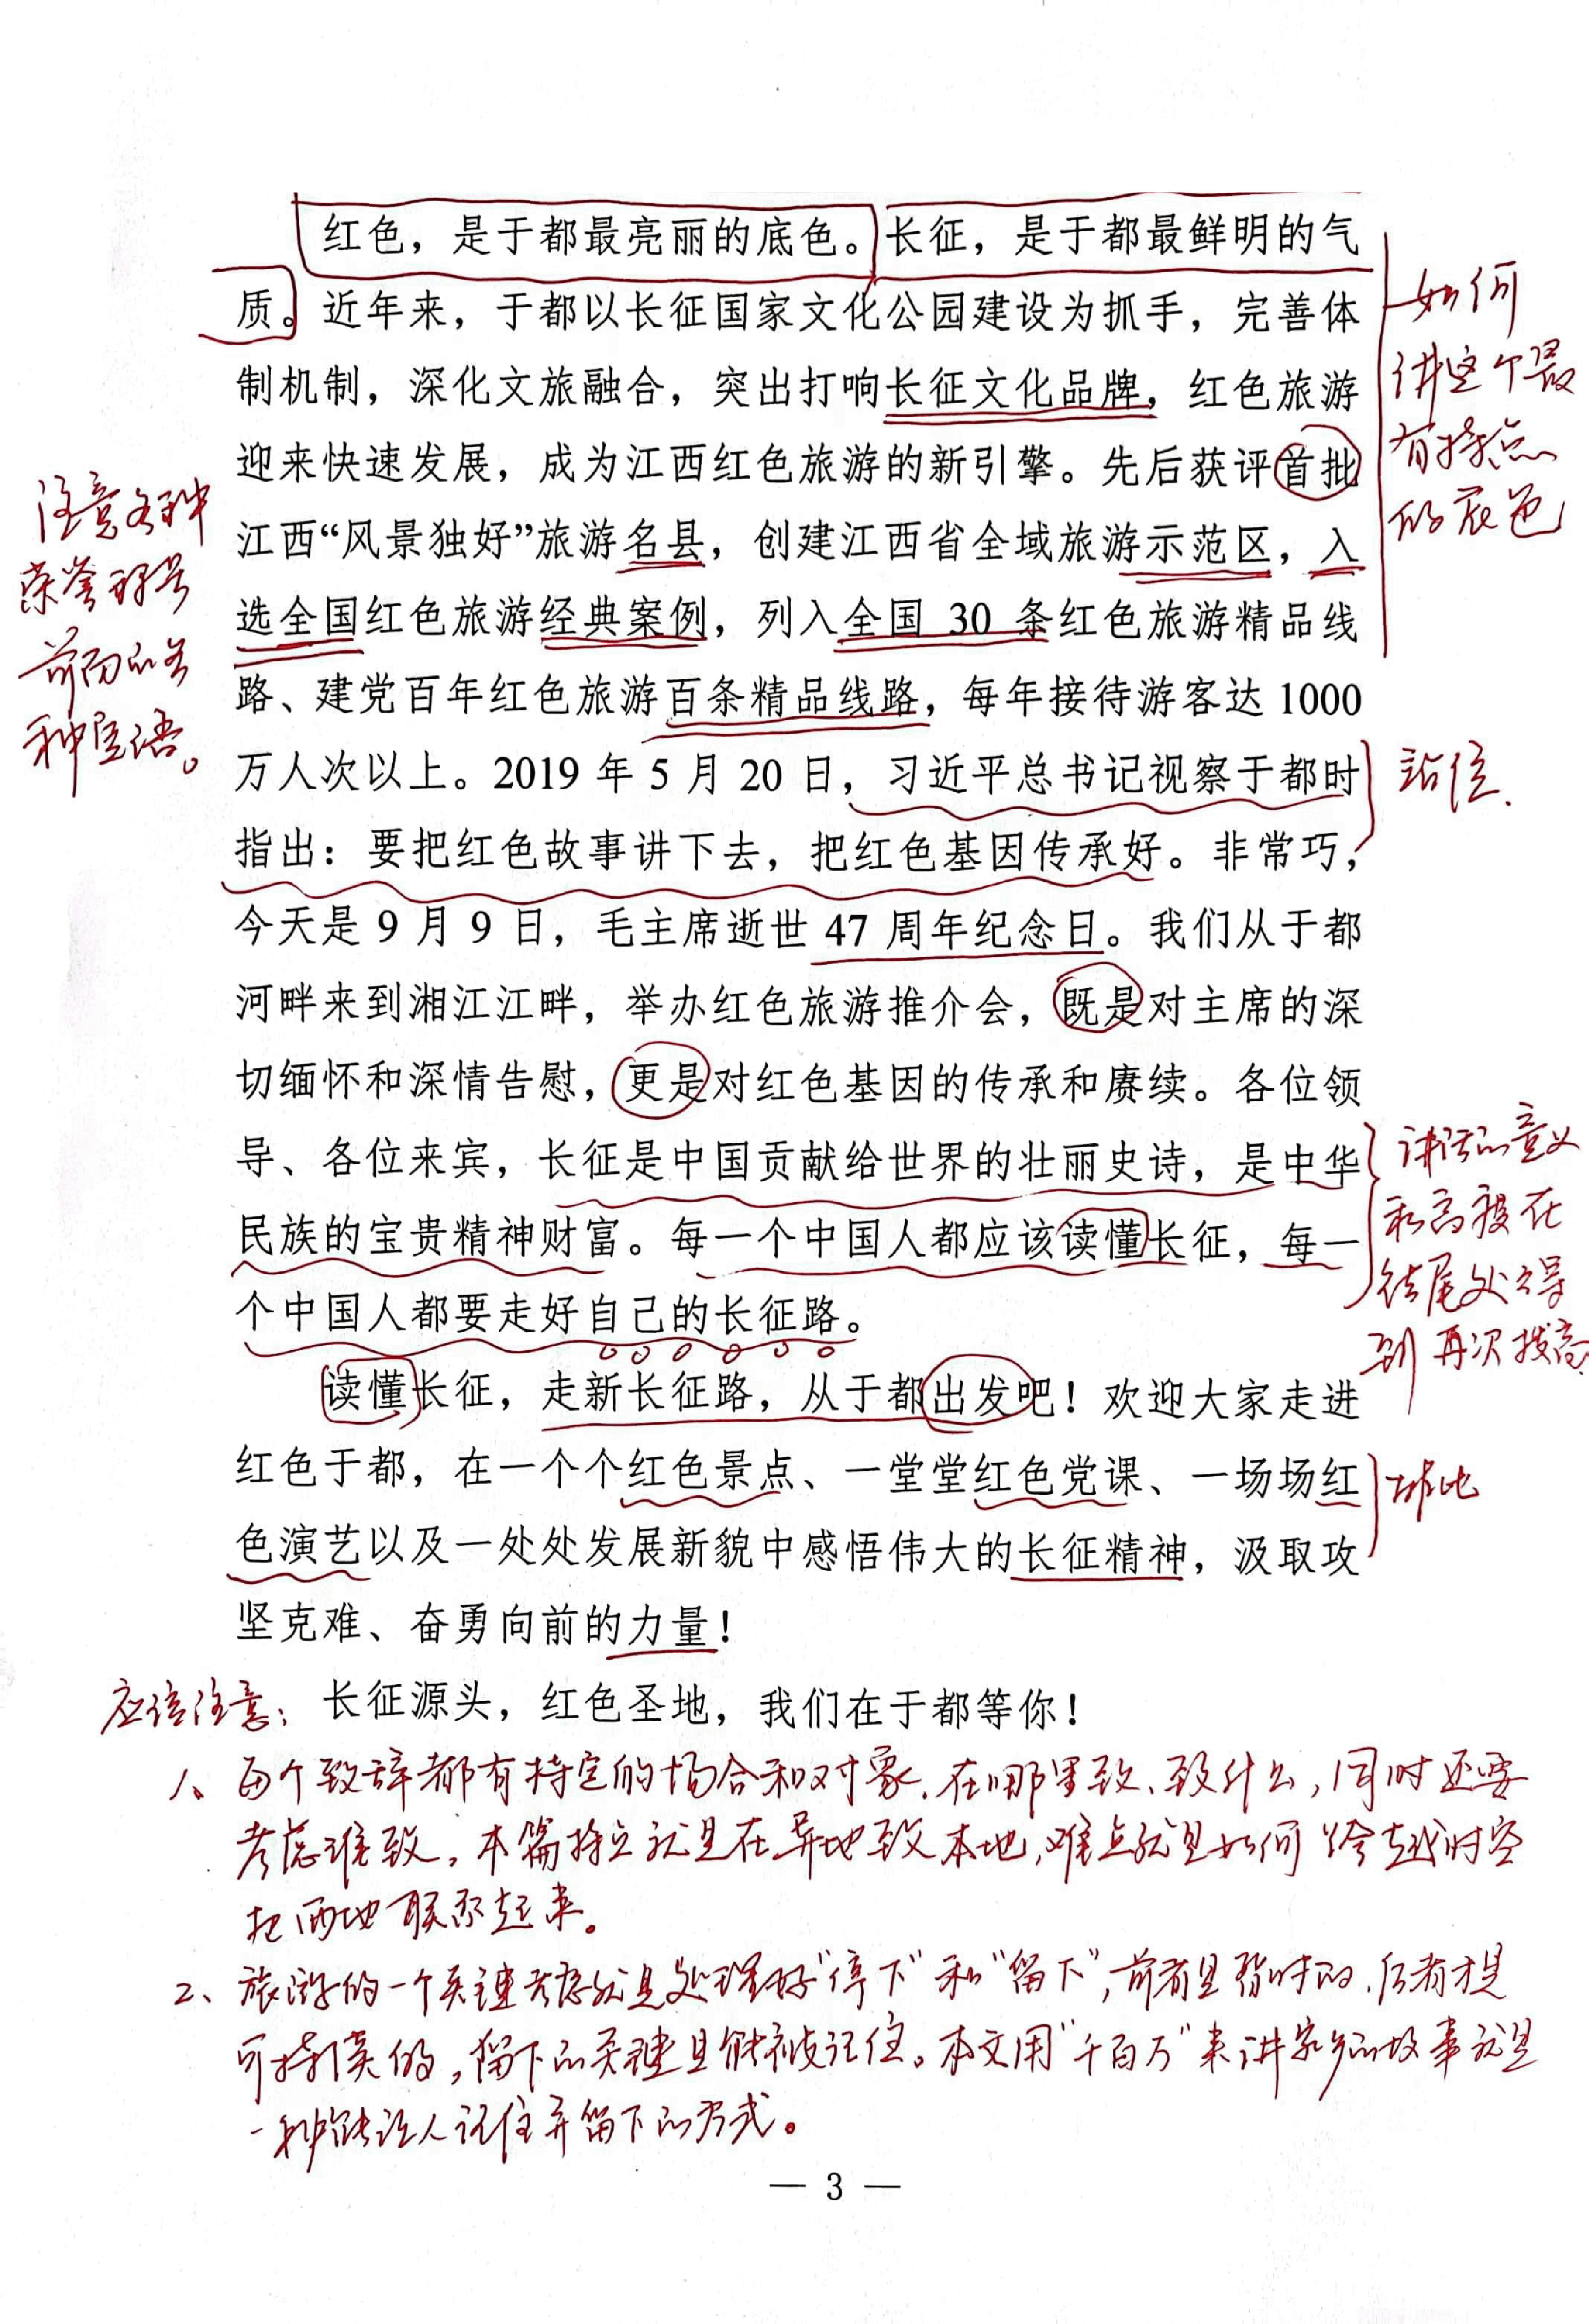 红色，是于都最亮丽的底色。长征，是于都最鲜明的气
质。近年来，于都以长征国家文化公园建设为抓手，完善体
制机制，深化文旅融合，突出打响长征文化品牌，红色旅游
迎来快速发展，成为江西红色旅游的新引擎。先后获评首批
江西“风景独好”旅游名县，创建江西省全域旅游示范区，入
选全国红色旅游经典案例，列入全国 30 条红色旅游精品线
路、建党百年红色旅游百条精品线路，每年接待游客达 1000
万人次以上。2019 年 5 月 20 日，习近平总书记视察于都时
指出：要把红色故事讲下去，把红色基因传承好。非常巧，
今天是 9 月 9 日，毛主席逝世 47 周年纪念日。我们从于都
河畔来到湘江江畔，举办红色旅游推介会，既是对主席的深
切缅怀和深情告慰，更是对红色基因的传承和赓续。各位领
导、各位来宾，长征是中国贡献给世界的壮丽史诗，是中华
民族的宝贵精神财富。每一个中国人都应该读懂长征，每一
个中国人都要走好自己的长征路。
读懂长征，走新长征路，从于都出发吧！欢迎大家走进
红色于都，在一个个红色景点、一堂堂红色党课、一场场红
色演艺以及一处处发展新貌中感悟伟大的长征精神，汲取攻
坚克难、奋勇向前的力量！
长征源头，红色圣地，我们在于都等你！
如何
讲这个最
有特点
的底色
注意各种
荣誉称号
前面的各
种定语。
站位.
讲话的意义
和高度在
结尾处又得
到再次拔高
排比
应该注意：
1、每个致辞都有特定的场合和对象.在哪里致、致什么,同时还要
考虑谁致。本篇特点就是在异地致本地,难点就是如何跨越时空
把两地联系起来。
2、旅游的一个关键考虑就是处理好“停下”和“留下”,前者是暂时的.后者才是
可持续的,留下的关键是能被记住。本文用“千百万”来讲家乡的故事就是
一种能让人记住并留下的方式。
— 3 —